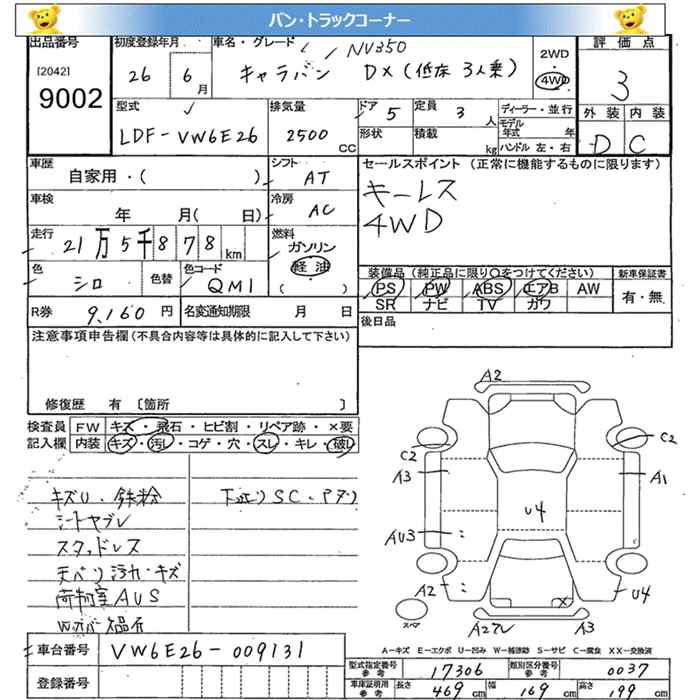 バン・トラックコーナー
出品番号 初度登録年月 車名・グレード NV350 2WD 評価点
[2042] 9002 26 6月 キャラバン DX (低床 3人乗) 4WD 3
型式 排気量 ドア 5 定員 3人 ディーラー・並行 外装 内装
LDF-VW6E26 2500CC 形状 積載 kg モデル年式 年 ハンドル 左・右 D C
車歴 シフト セールスポイント (正常に機能するものに限ります)
自家用・( ) AT キーレス
車検 冷房 4WD
年 月( 日) AC
走行 燃料
21万5千878km ガソリン
軽油
色 シロ 色替 色コード QM1 ( )
装備品 (純正品に限り○をつけてください) 新車保証書
PS PW ABS エアB AW 有・無
SR ナビ TV カワ
R券 9,160円 名変通知期限 月 日 後日品
注意事項申告欄 (不具合内容等は具体的に記入して下さい)
修復歴 有 [箇所 ]
検査員 FW キズ・飛石・ヒビ割・リペア跡・×要
記入欄 内装 キズ・汚し・コゲ・穴・スレ・キレ・破し
キズU・鉄粉 下廻りSC・アブリ
シートヤブレ
スタッドレス
天ベリ汚れ・キズ
荷物室AUS
車台番号 VW6E26-009131
登録番号
A2
C2 C2
A3 A1
U4
AU3
A2 U4
スペア
A3
A-キズ E-エクボ U-凹み W-補修跡 S-サビ C-腐食 XX-交換済
型式指定番号 参考 17306 類別区分番号 参考 0037
車庫証明用 参考 長さ 469cm 幅 169cm 高さ 199cm